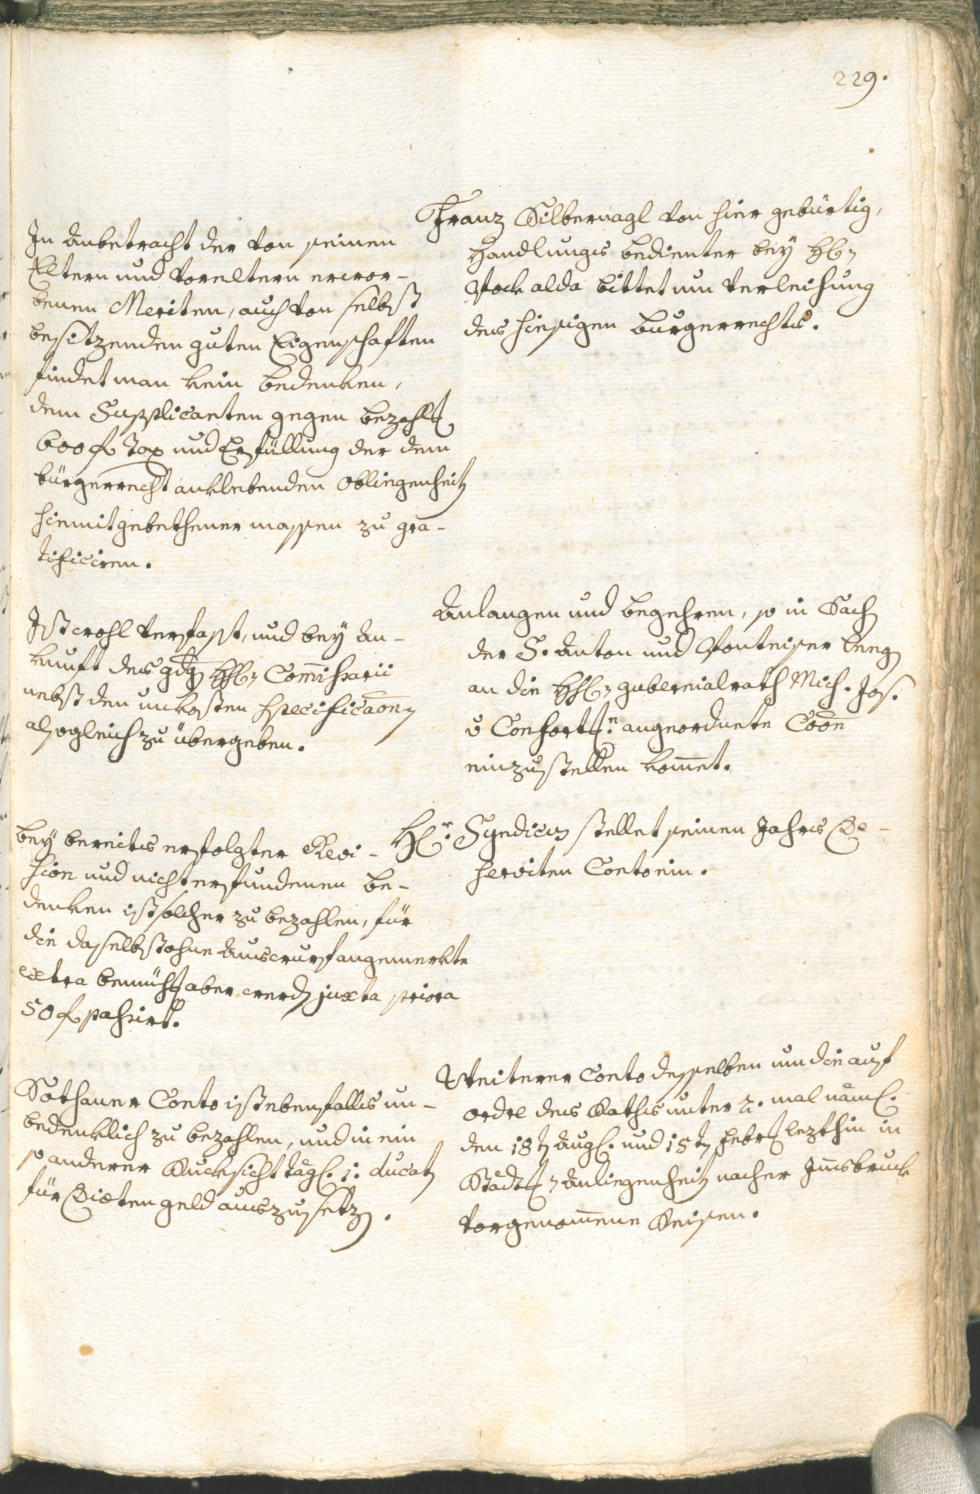 229.
Franz Silbernagl von hier gebürtig,
Handlungs bedienter bey H:
Stock alda bittet um verleihung
des hiesigen burgerrechts.
In Anbetracht der von seinen
Eltern und voreltern erwor-
benen Meriten, auch von selbst
besitzenden guten Eigenschaften
findet man kein bedenken,
dem Supplicanten gegen bezahlt
600 f Tax und Erfüllung der dem
bürgerrecht anklebenden Obliegenheit
hiemit gebethener massen zu gra-
tificiren.
Anlangen und begehren, so in Sach
der S. Anton und
an die gubernialrath Mich. Jos.
v Consort: angeordnete Coon
einzustellen kom̅et.
Ist wohl verfasst, und bey An-
kunft des gdg Com̅issarii
nebst den unkosten specificaon
alsogleich zu übergeben.
Hr: Syndicus stellet seinen Jahrs De-
serviten Conto ein.
bey bereits erfolgter Revi-
sion und nicht erfundenen be-
denken ist solcher zu bezahlen, für
die daselbst ohne Auswurf angemerkte
extra bemühg aber werd juxta priora
50 f passirt.
Weiterer Conto desselben um die auf
ordre des Raths unter 2. mal näml.
den 18t Aug. und 15t Febr lezthin in
Stadt Anliegenheit nacher Innsbruck
vorgenom̅ene Reisen.
Sothaner Conto ist ebenfalls un-
bedenklich zu bezahlen, und in ein
so anderer Rucksicht tägl. 1: ducat
für Diæten geld auszusetz.